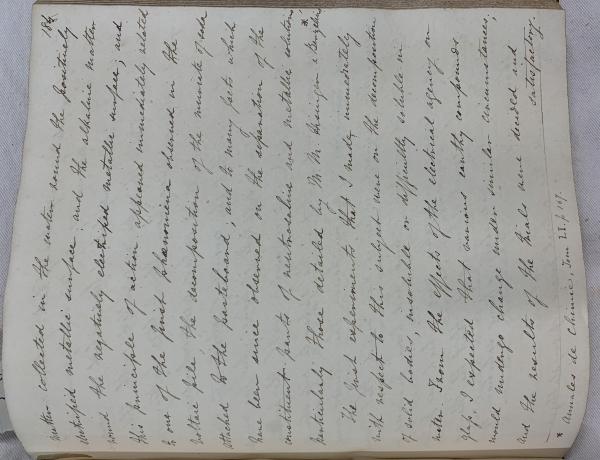 184
matter collected in the water round the positively
electrified metallic surface; and the alkaline matter
round the negatively electrified metallic surface; and
this principle of action appeared immediately related
to one of the first phænomena observed in the
Voltaic pile, the decomposition of the muriate of soda
attached to the pasteboard; and to many facts which
have been since observed on the separation of the
constituent parts of neutrosaline and metallic solutions,
particularly those detailed by M M. Hisinger & Berzelius *
The first experiments that I made immediately
with respect to this subject were on the decomposition
of solid bodies insoluble or difficultly soluble in
water. From the effects of the electrical agency on
glass, I expected that various earthy compounds
would undergo change under similar circumstances;
and the results of the trials were decided and
satisfactory.
* Annales de Chimie, Tom